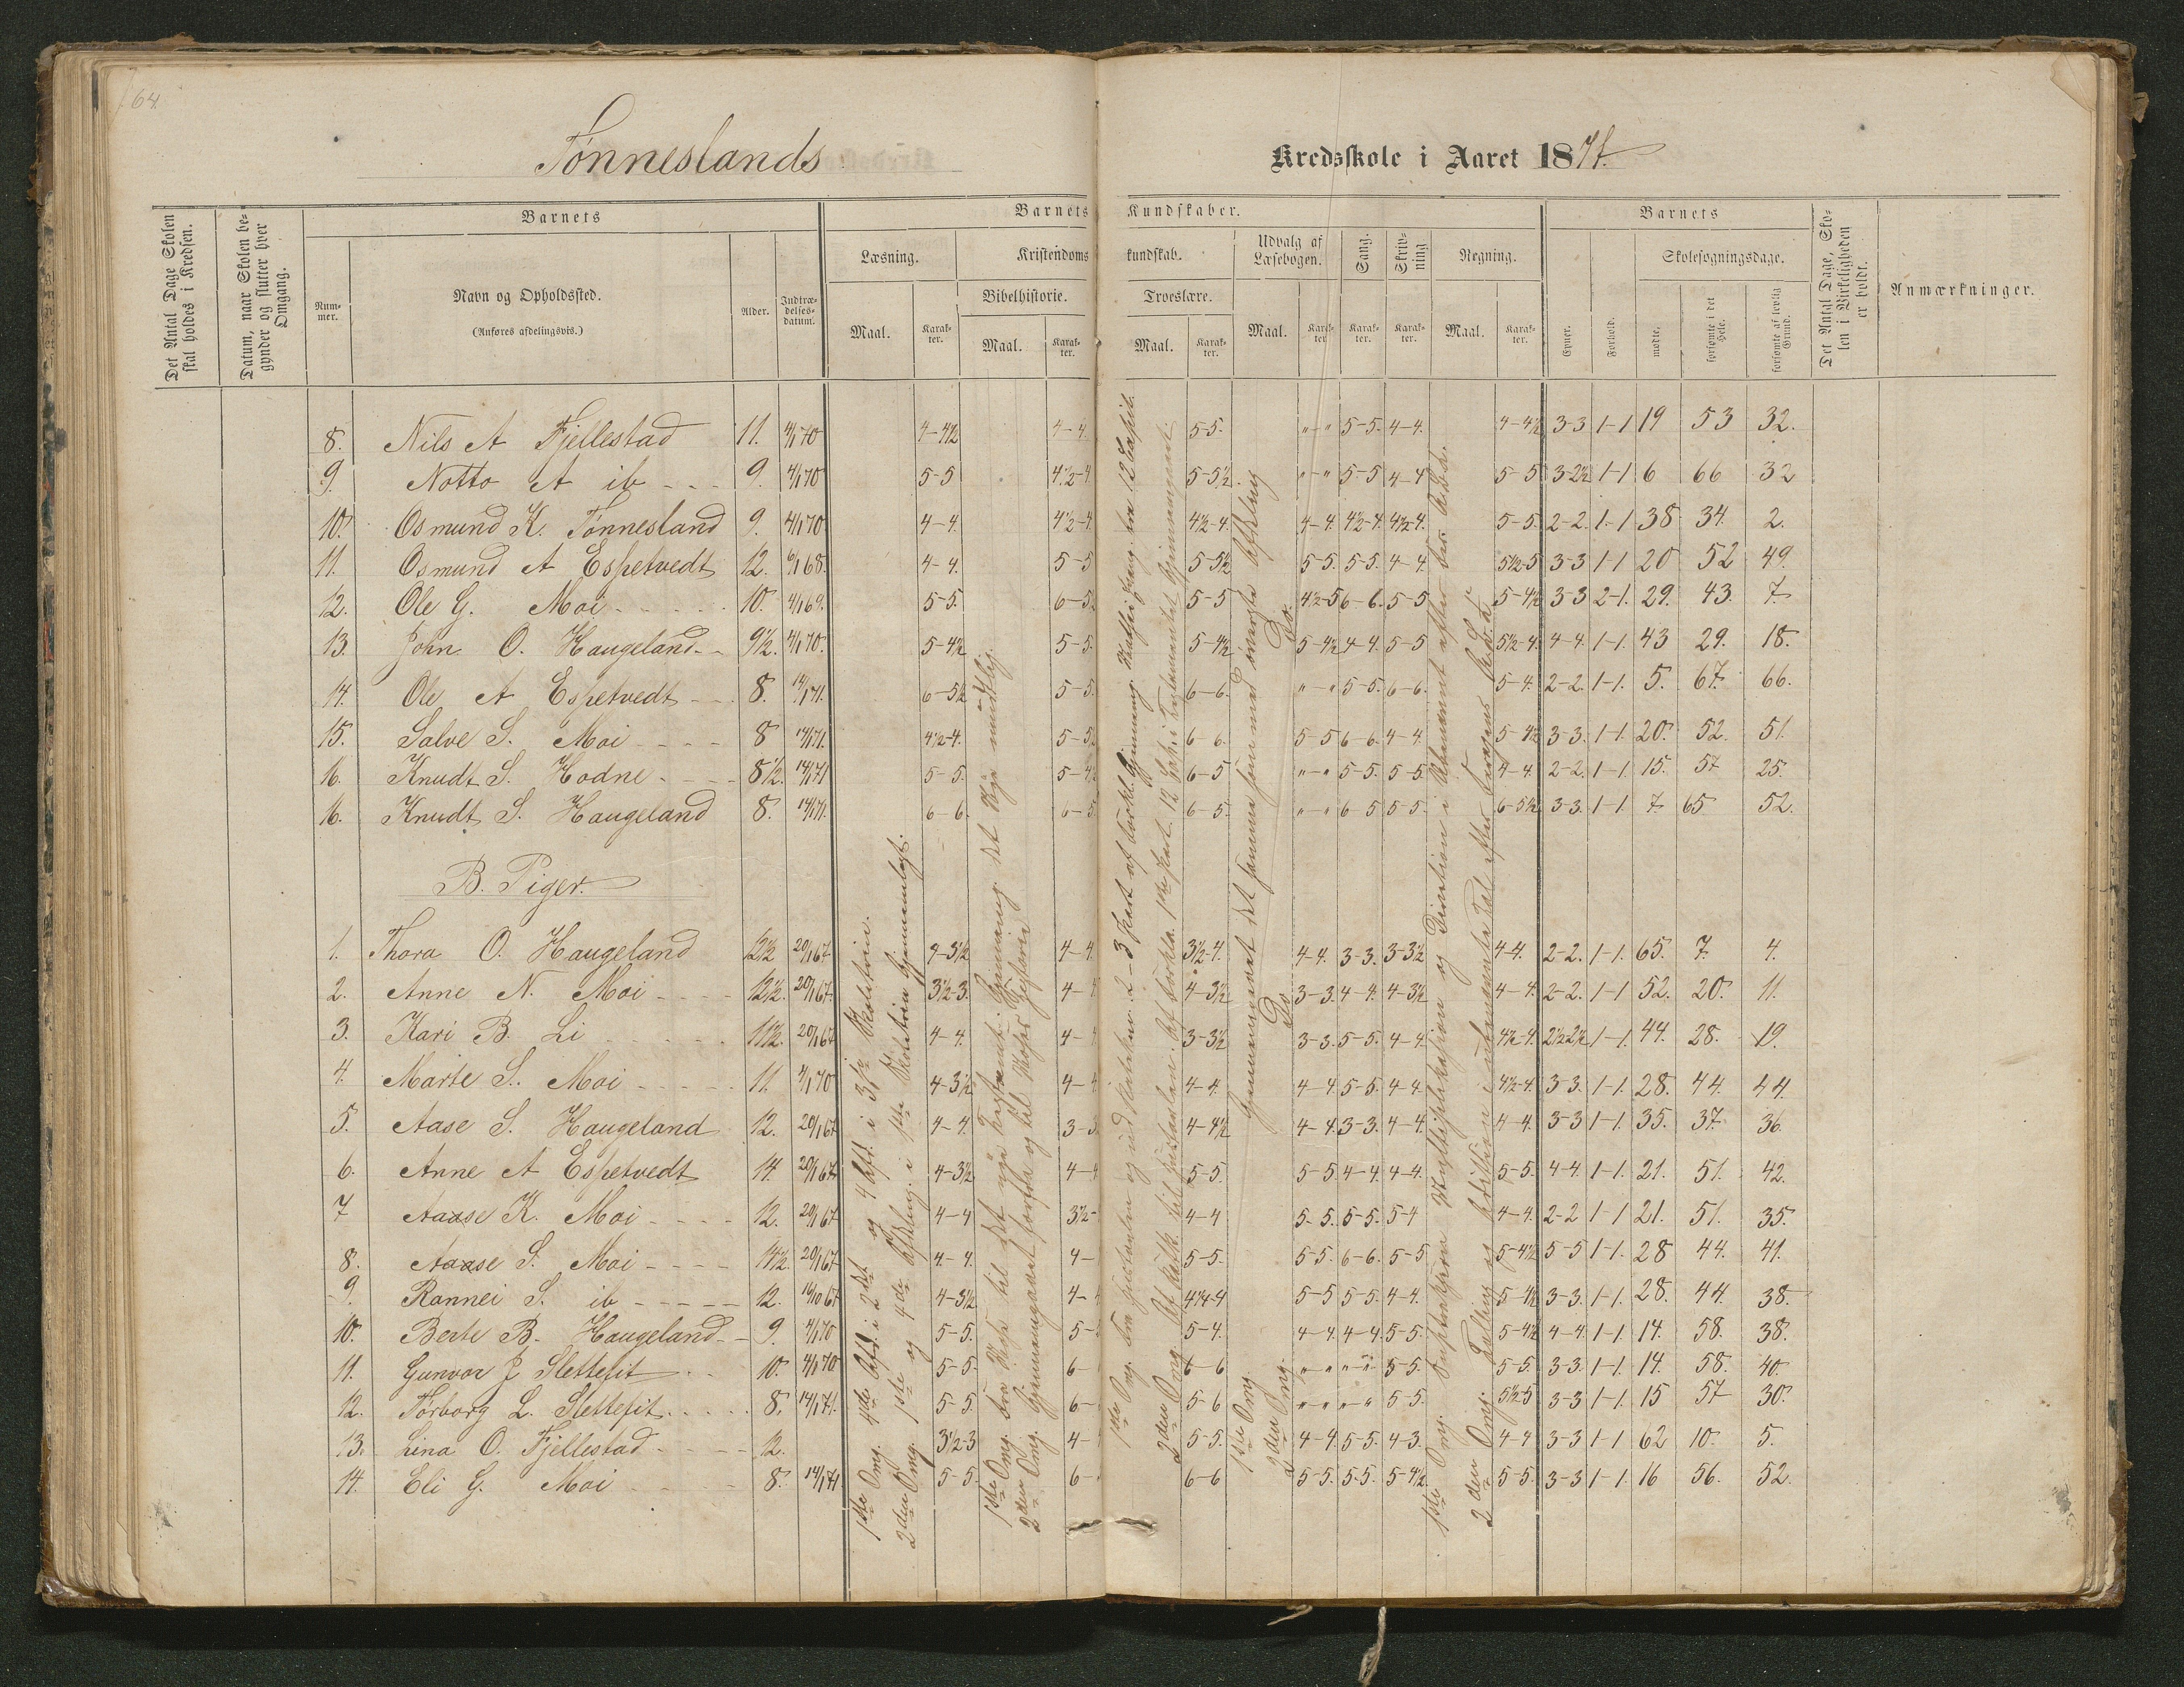 64.
Tønneslands
Kredsskole i Aaret 1871.
Det Antal Dage Skolen skal holdes i Kredsen.
Datum, naar Skolen begynder og slutter hver Omgang.
Barnets
Num-mer.
Navn og Opholdssted.
(Anføres afdelingsvis.)
Alder.
Indtræ-delses-datum.
Barnets Kundskaber.
Læsning.
Maal.
Karak-ter.
Kristendoms kundskab.
Bibelhistorie.
Maal.
Karak-ter.
Troeslære.
Maal.
Karak-ter.
Udvalg af Læsebogen.
Maal.
Karak-ter
Sang.
Karak-ter.
Skriv-ning
Karak-ter.
Regning.
Maal.
Karak-ter.
Barnets
Evner.
Forhold.
Skolesøgningsdage.
mødte.
forsømte i det Hele.
forsømte af lovlig Grund.
Det Antal Dage, Sko-len i Virkeligheden er holdt.
Anmærkninger.
8. Nils A Fjellestad 11. 4/1 70 4-4½ 4-4. 5-5. "-" 5-5. 4-4. 4-4½ 3-3 1-1 19 53 32.
9. Notto A ib - - - 9. 4/1 70 5-5 4½-4 5-5½ "-" 5-5 4-4 5-5 3-2½ 1-1 6 66 32
10. Osmund K. Tønnesland 9. 4/1 70 4-4. 4½-4. 4½-4. 4-4. 4½-4. 4½-4. 5-5. 2-2. 1-1 38 34. 2.
11. Osmund A Espetvedt 12. 6/1 68. 4-4. 5-5 5-5½ 5-5. 5-5. 4-4. 5½-5 3-3 1-1 20 52 49.
12. Ole G. Moi 10. 4/1 69. 5-5. 6-5. 5-5 4½-5 6-6. 5-5 5-4½ 3-3 2-1. 29. 43. 7.
13. John O. Haugeland 9½. 4/1 70. 5-4½ 5-5. 5-4½ 5-4½ 4-4. 5-5 5½-4. 4-4. 1-1. 43 29. 18.
14. Ole A Espetvedt 8. 14/1 71. 6-5½ 5-5. 6-6. "-" 5-5. 6-6. 5-4. 2-2. 1-1. 5. 67. 66.
15. Salve S. Moi 8 14/1 71. 4½-4. 5-5½ 6-6. 5-5 6-6. 4-4. 5-4½ 3-3. 1-1. 20. 52. 51.
16. Knudt S. Hodne 8½. 14/1 71 5-5. 5-4½ 6-5 "-" 5-5. 5-5. 4-4. 2-2. 1-1. 15. 57 25.
16. Knudt S. Haugeland 8. 14/1 71. 6-6. 6-5. 6-5. "-" 6-5 5-5. 6-5½ 3-3. 1-1 7. 65 52.
B. Piger.
1. Thora O. Haugeland 12½ 20/1 67 4-3½ 4-4. 3½-4. 4-4. 3-3. 3-3½ 4-4. 2-2. 1-1. 65. 7. 4.
2. Anne N. Moi 12½. 20/1 67. 3½-3. 4- 4-3½ 3-3. 4-4. 4-3½ 4-4. 2-2. 1-1 52. 20. 11.
3. Kari B. Li 11½. 20/1 67 4-4. 4- 3-3½ 3-3. 5-5. 4-4. 4½-4. 2½-2½ 1-1. 44. 28. 19.
4. Marte S. Moi 11. 4/1 70 4-3½ 4- 4-4. 4-4. 5-5. 4-4. 4½-4. 3-3. 1-1. 28. 44. 44.
5. Aase S. Haugeland 12. 20/1 67 4-4. 3-3 4-4½ 4-4. 3-3. 4-4. 4-4. 3-3 1-1. 35. 37. 36.
6. Anne A Espetvedt 14. 20/1 67 4-3½ 4- 5-5. 5-5. 4-4. 4-4. 5-5. 4-4. 1-1. 21. 51. 42.
7 Aaase K. Moi 12. 20/1 67 4-4 3½- 4-4 5-5. 5-5. 5-4 4-4. 2-2 1-1 21. 51. 35.
8. Aaase S. Moi 14½. 20/1 67. 4-4. 4- 5-5. 5-5. 6-6. 5-5 5-4½ 5-5 1-1. 28 44. 41.
9. Rannei S. ib 12. 16/10 67 4-3½ 4- 4¼-4 5-5 5-5. 4-4. 5-4½ 3-3. 1-1. 28. 44. 38.
10. Berte B. Haugeland 9. 4/1 70 5-5. 5- 5-4. 4-4. 4-4. 5-5. 5-4½ 4-4. 1-1. 14. 58. 38.
11. Gunvor J Slettefit 10. 4/1 70 5-5. 6- 6-6 "-" "-" 5-5. 5-5. 3-3. 1-1. 14. 58. 40.
12. Torborg L. Slettefit 8. 14/1 71. 5-5. 6- 5-6 "-" "-" 5-5. 5½-5 3-3 1-1. 15 57 30.
13. Lina O. Fjellestad 12. 3½-3 4- 5-5. 4-4. 5-5. 4-3. 4-4 3-3 1-1 62 10. 5.
14. Eli G. Moi 8. 14/1 71 5-5. 6- 6-6 5-5. 5-5. 5-4½ 5-5. 3-3 1-1. 16 56. 52.
1ste Omg. 4de Afd. i 2det og 4 Afd. i 3die Skoletrin.
2den Omg. 1ste og 4de Afdeling i 1ste Skoletrin Gjennemlagt.
1ste Omg. Fra til det nye Testament. Gjennemg. det Nye mundtlig.
2den Omg. Gjennemgaaet forfra og til Historie
1ste Omg. Fra og ud 2-3 Part af Forkl. Gjennemg. fra 12 Capit.
2den Omg. Gjennemgaaet.
1ste Omg. Gjennemgaaet det samme som med øverste Afdeling
2den Omg. Do. Do.
1ste Omg. Subtraktion Multiplikasjon og Division i
2den Omg. Tælling og Addition i